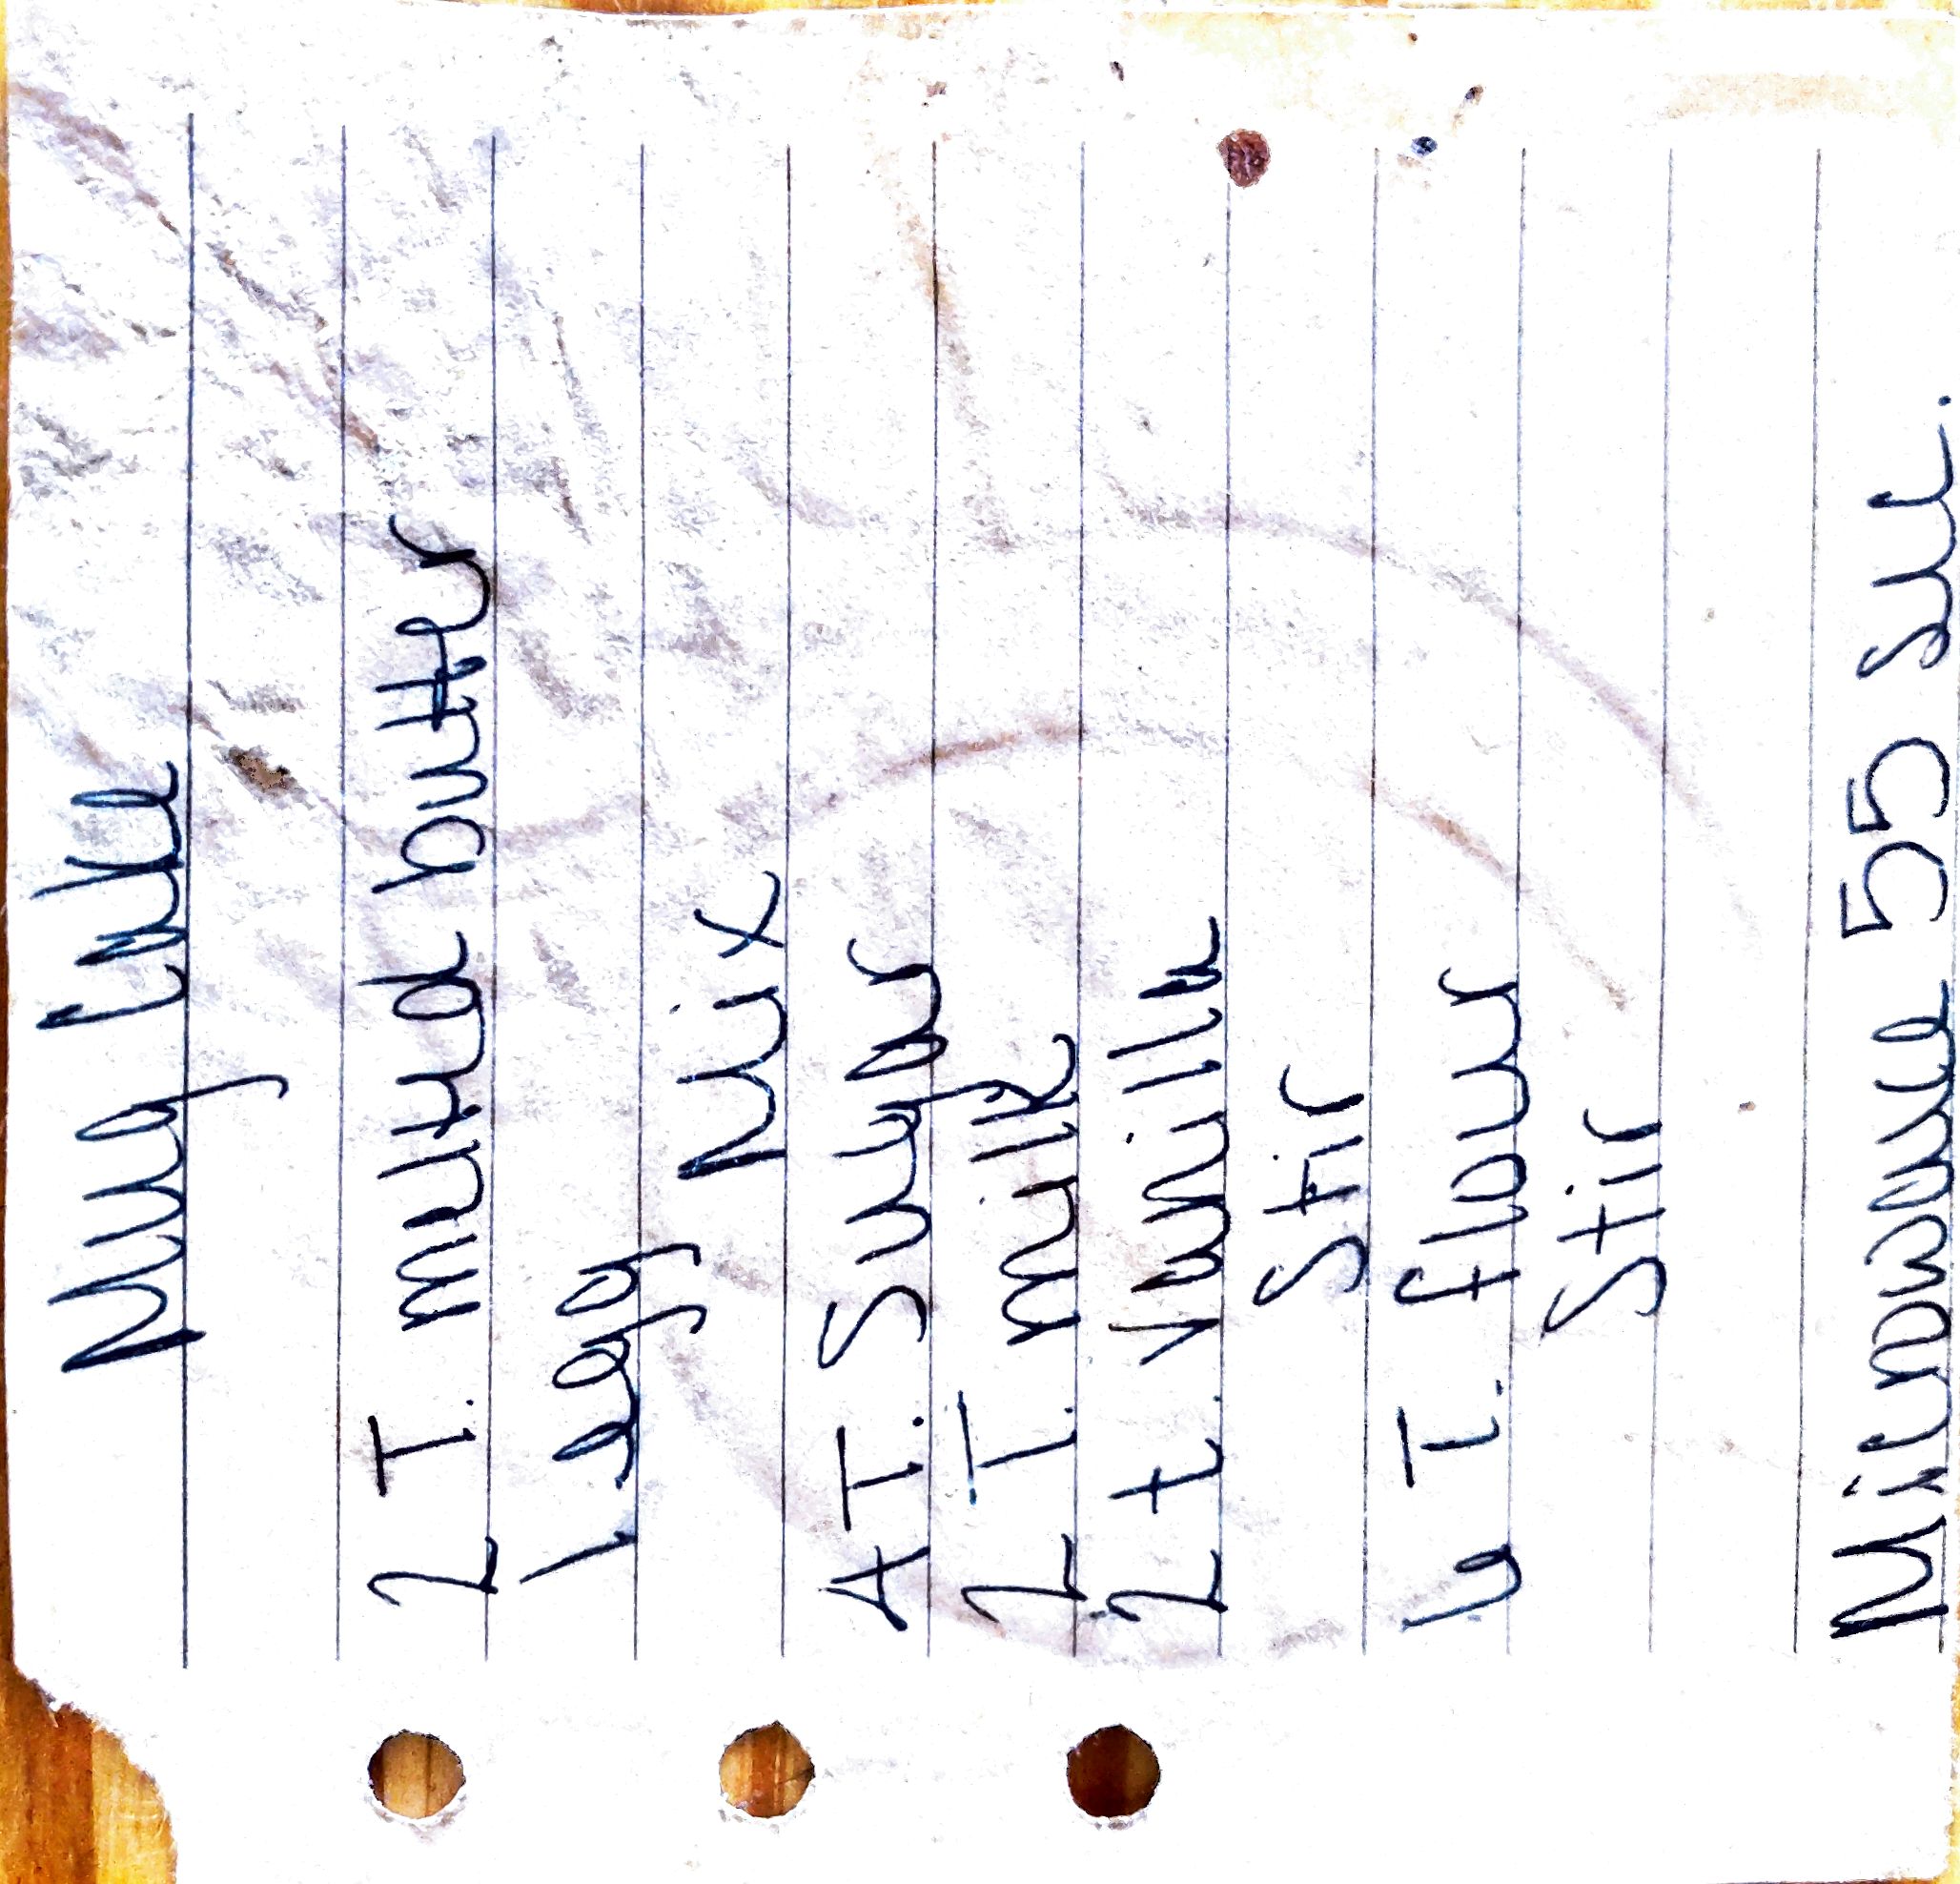 Mug Cake
2 T. melted butter
1 egg
Mix
4 T. Sugar
2 T. milk
2 t. vanilla
Stir
6 T. flour
Stir
Microwave 55 sec.